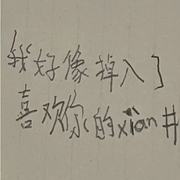 我好像掉入了
喜欢你的xian井